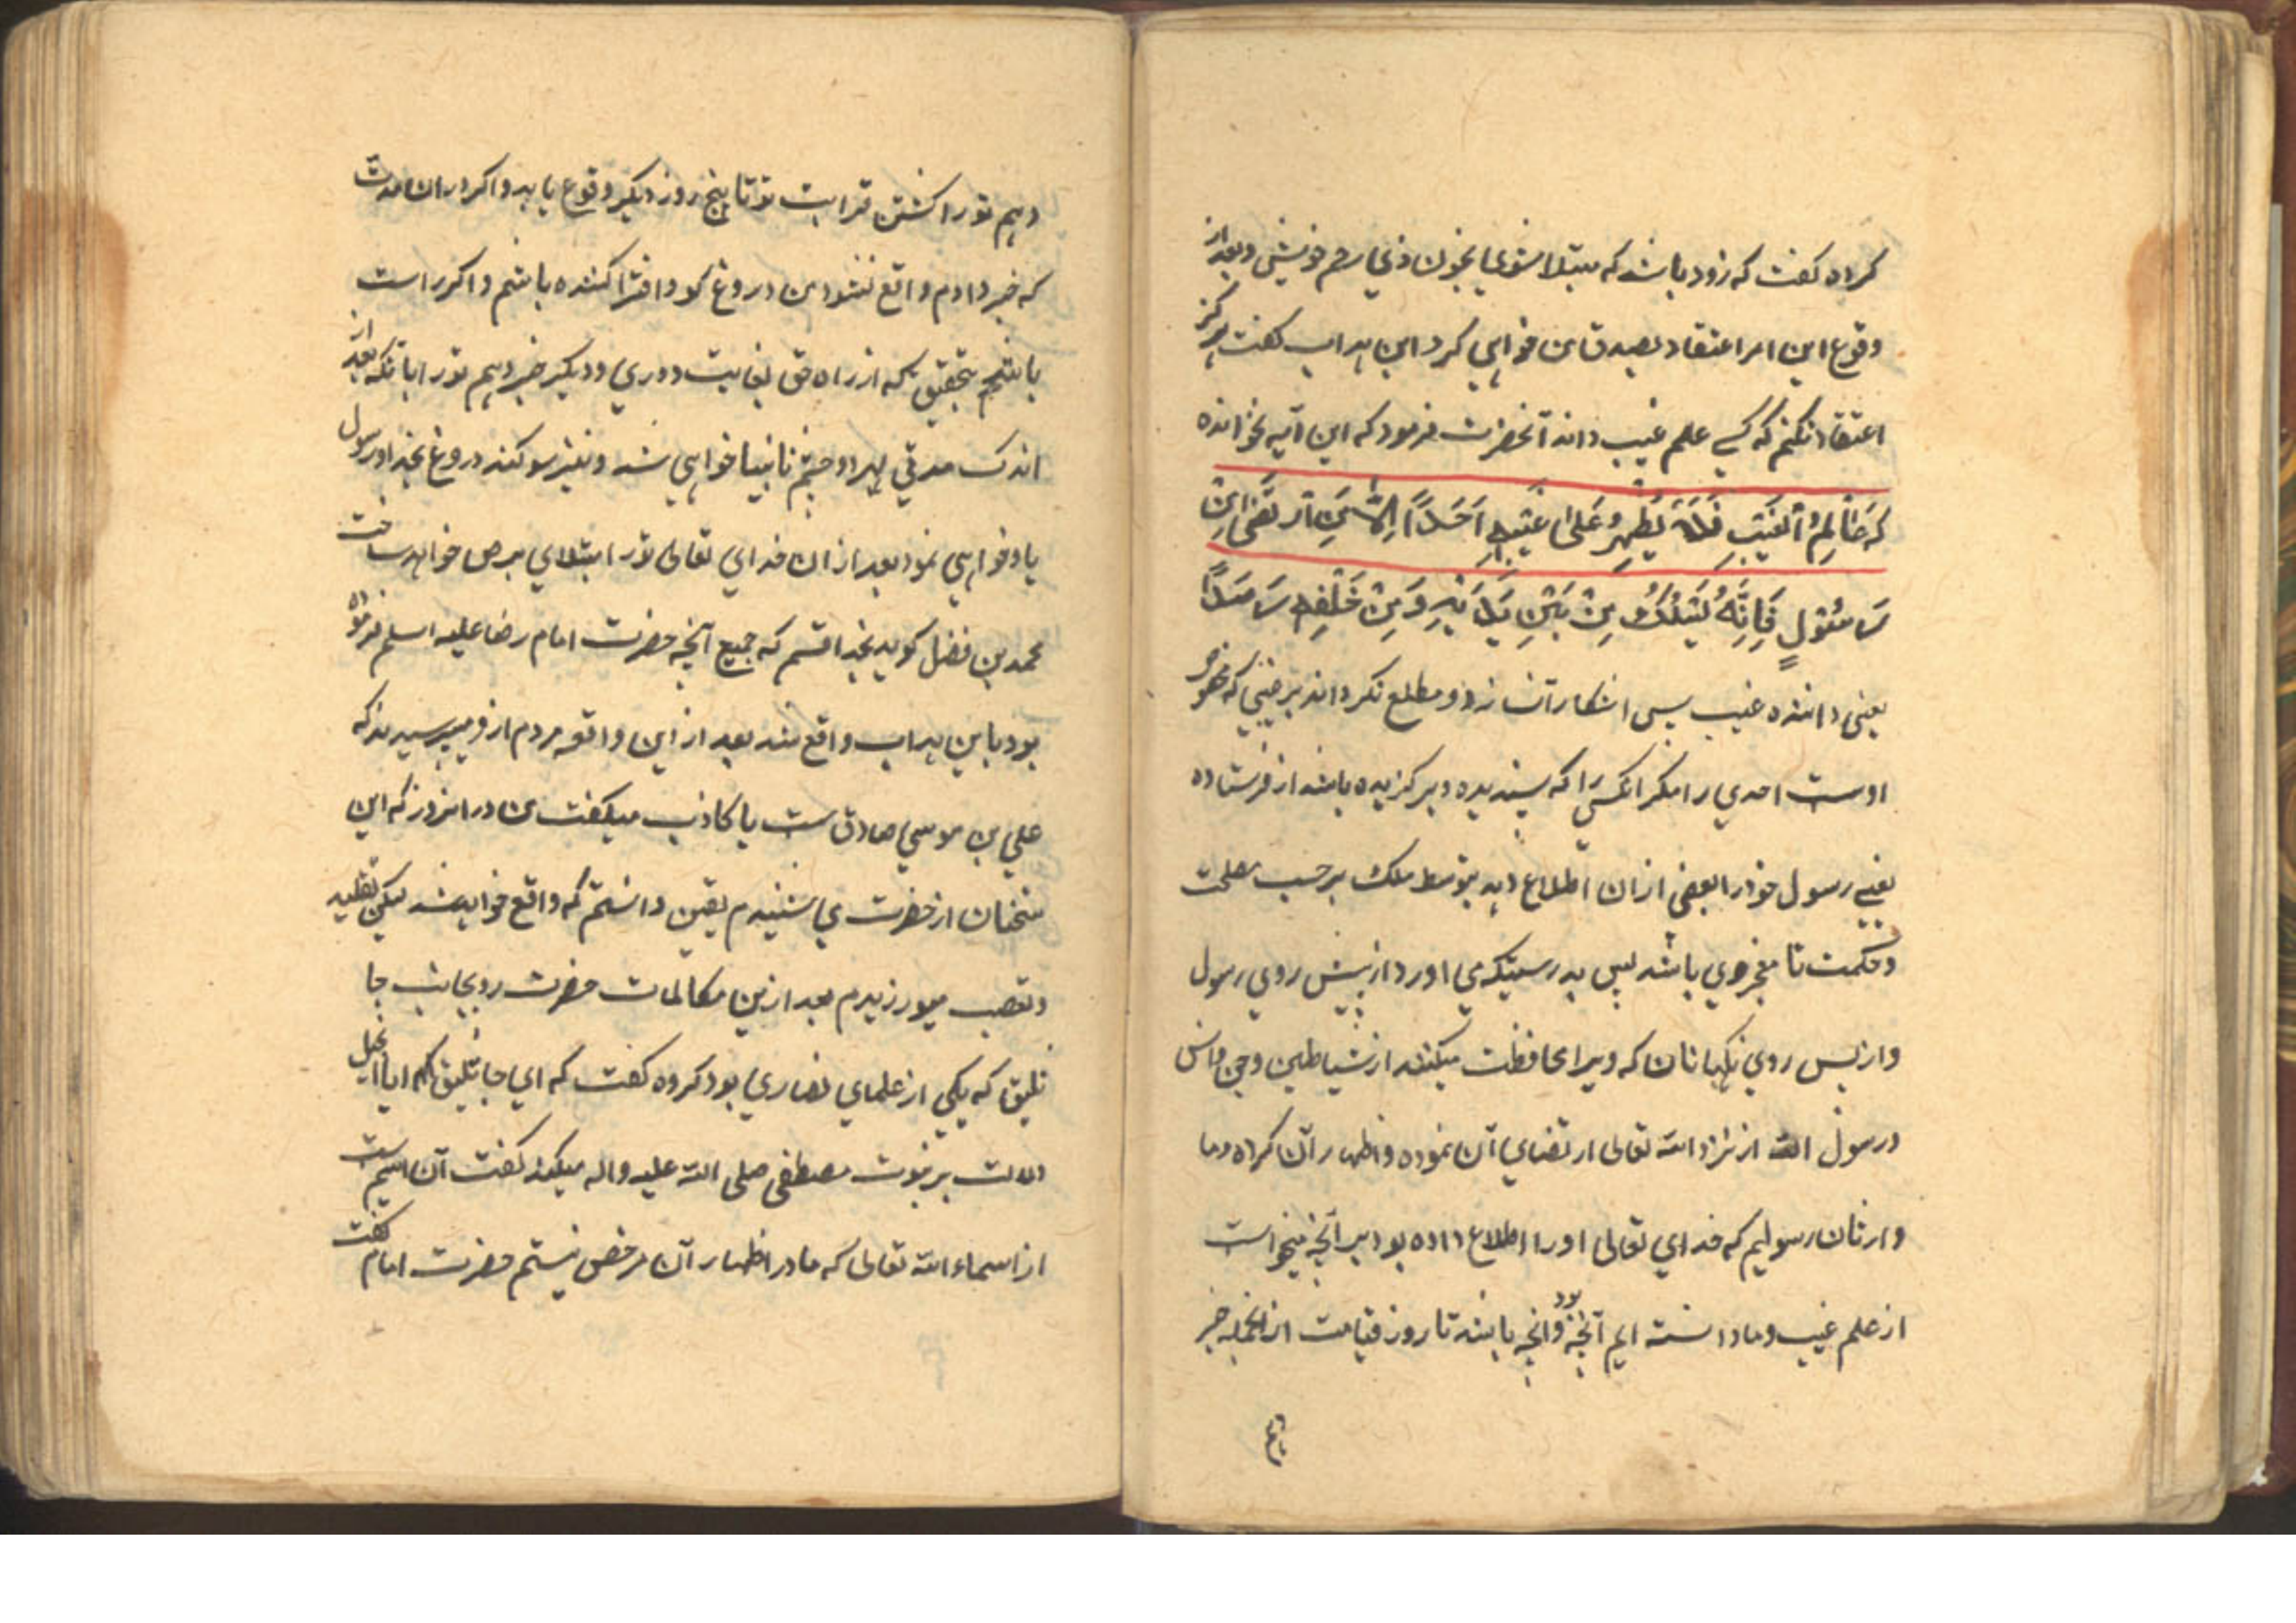 کرده گفت که زود باشد که مبتلا شوی بخون ذی رحم خویش و بعد از
وقوع این امر اعتقاد بصدق من خواهی کرد ابن هداب گفت هرگز
اعتقاد نکنم که کسی علم غیب داند آنحضرت فرمود که این آیه نخوانده
که عَالِمُ الغَیبِ فَلَا یُظهِرُ عَلیٰ غَیبِهِ اَحَدًا اِلَّا مَنِ ارتَضیٰ مِن
رَسُولٍ فَاِنَّهُ یَسلُکُ مِن بَینِ یَدَیهِ وَ مِن خَلفِهِ رَصَدًا
یعنی داننده غیب پس اشکار آن نسازد و مطلع نکرداند بر غیبی که مخصوص
اوست احدی را مگر انکسی را که پسندیده و برکزیده باشد از فرستاده
یعنی رسول خود را بعضی از ان اطلاع دهد بتوسط ملک بر حسب مصلحت
و حکمت تا معجزه وی باشد پس بدرستیکه می اورد از پیش روی رسول
و از پس روی نکهبانان که ویرا محافظت میکنند از شیاطین و جن و انس
و رسول الله از نزد الله تعالی ارتضای آن نموده و اظهار آن کرده و ما
وارثان رسولیم که خدای تعالی او را اطلاع داده بود بر آنچه میخواست
از علم غیب و ما دانسته ایم آنچه بود و انچه باشد تا روز قیامت از انجمله خبر
دهم تو را کشتن قرابت تو تا پنج روز دیکر وقوع یابد و اکر در ان مدت
که خبر دادم واقع نشود من دروغ کو و افترا کننده باشم و اکر راست
باشم بتحقیق که از راه حق بغایت دوری و دیکر خبر دهم تو را بانکه بعد از
اندک مدتی بهر دو چشم نابینا خواهی شد و نیز سوکند دروغ بخدا و رسول
یاد خواهی نمود بعد از ان خدای تعالی تو را مبتلای برص خواهد ساخت
محمد بن فضل کوید بخدا قسم که جمیع آنچه حضرت امام رضا علیه اسلم فرموده
بود باین هداب واقع شد بعد از این واقعه مردم از و میپرسیدند که
علی بن موسی صادق ست یا کاذب میکفت من در انروز که این
سخنان از حضرت می شنیدم یقین دانستم که واقع خواهد شد لیکن تقلید
و تعصب میورزیدم بعد ازین مکالمات حضرت روی بجانب جا
ثلیق که یکی از علمای نصاری بود کرده کفت که ای جاثلیق ایا انجیل
دلالت بر نبوت مصطفی صلی الله علیه واله میکند کفت آن اسم ست
از اسماء الله تعالی که ما در اظهار آن مرخص نیستم حضرت امام کفت